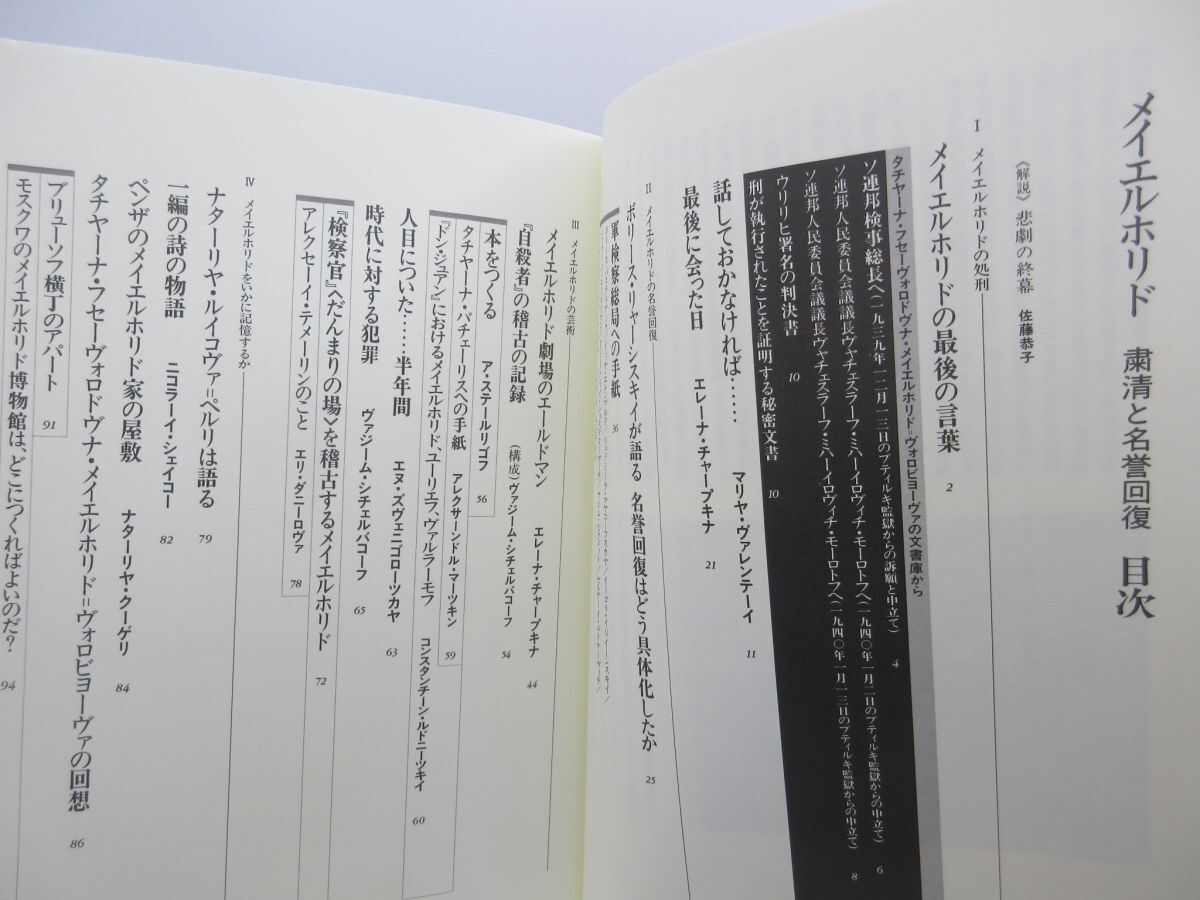 メイエルホリド 粛清と名誉回復 目次
《解説》悲劇の終幕 佐藤恭子
I メイエルホリドの処刑
メイエルホリドの最後の言葉 2
タチヤーナ・フセーヴォロドヴナ・メイエルホリド=ヴォロビヨーヴァの文書庫から
ソ連邦検事総長へ(一九三九年一二月一三日のブティルキ監獄からの訴願と申立て) 4
ソ連邦人民委員会議議長ヴャチェスラーフ・ミハーイロヴィチ・モーロトフへ(一九四〇年一月二日のブティルキ監獄からの申立て) 6
ソ連邦人民委員会議議長ヴャチェスラーフ・ミハーイロヴィチ・モーロトフへ(一九四〇年一月一三日のブティルキ監獄からの申立て) 8
ウリリヒ署名の判決書 10
刑が執行されたことを証明する秘密文書 10
話しておかなければ…… マリヤ・ヴァレンテーイ 11
最後に会った日 エレーナ・チャープキナ 21
II メイエルホリドの名誉回復
ボリース・リャーシスキイが語る 名誉回復はどう具体化したか 25
軍検察総局への手紙 36
III メイエルホリドの芸術
メイエルホリド劇場のエールドマン エレーナ・チャープキナ 44
『自殺者』の稽古の記録 (構成)ヴァジーム・シチェルバコーフ 54
本をつくる ア・ステールリゴフ 56
タチヤーナ・バチェーリスへの手紙 アレクサーンドル・マーツキン 59
『ドン・ジュアン』におけるメイエルホリド、ユーリエラ、ヴァルラーモフ コンスタンチーン・ルドニーツキイ 60
人目についた……半年間 エヌ・ズヴェニゴローツカヤ 63
時代に対する犯罪 ヴァジーム・シチェルバコーフ 65
『検察官』へだんまりの場〉を稽古するメイエルホリド 72
アレクセーイ・テメーリンのこと エリ・ダニーロヴァ 78
IV メイエルホリドをいかに記憶するか
ナターリヤ・ルイコヴァ=ペルリは語る 79
一編の詩の物語 ニコラーイ・シェイコー 82
ペンザのメイエルホリド家の屋敷 ナターリヤ・クーゲリ 84
タチヤーナ・フセーヴォロドヴナ・メイエルホリド=ヴォロビヨーヴァの回想 86
ブリューソフ横丁のアパート 91
モスクワのメイエルホリド博物館は、どこにつくればよいのだ? 94